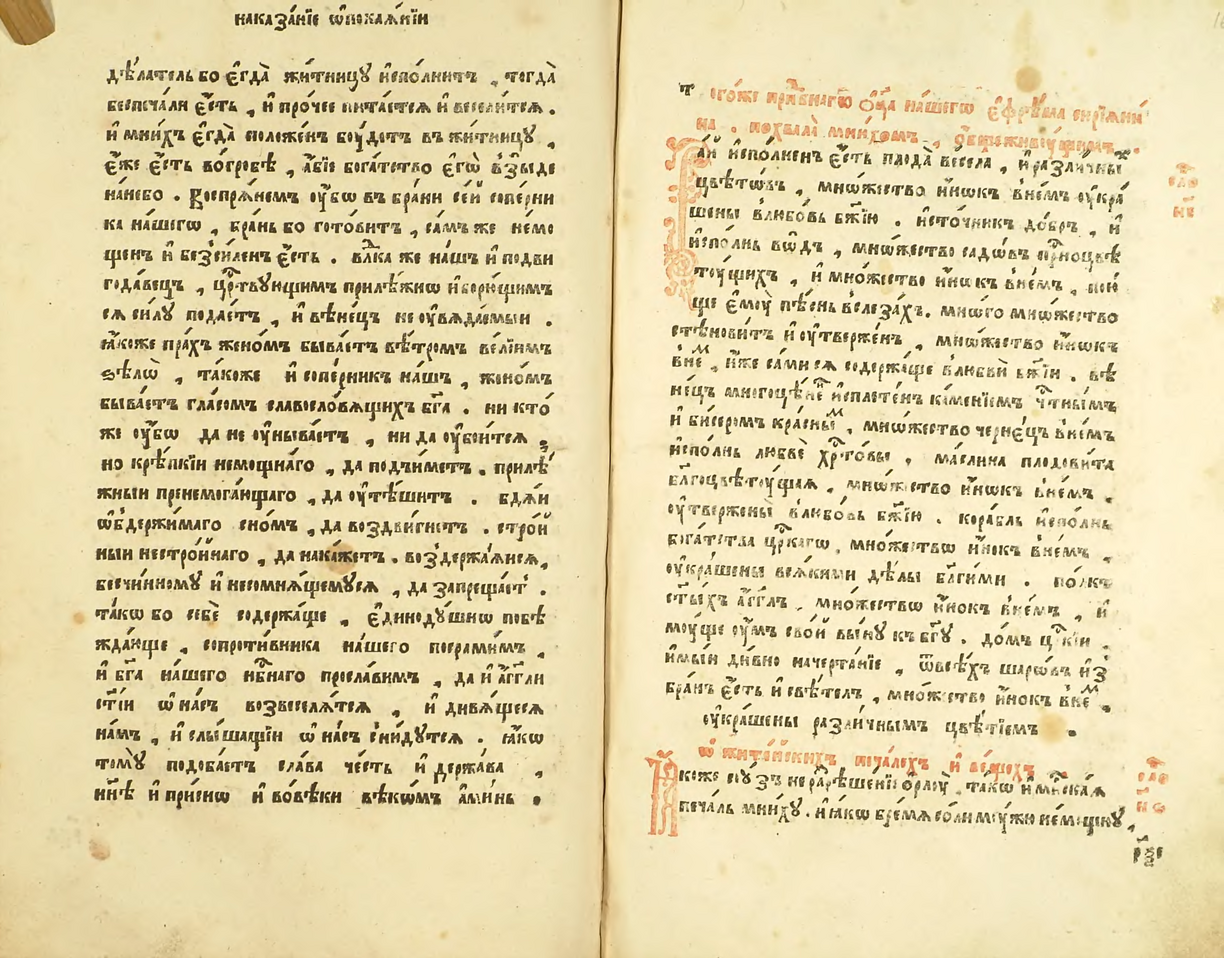 наказанїе ѡ҆покаѧ́нїи
дѣ́латель бо є҆гда̀ жи́тницꙋ и҆спо́лнитъ , тогда̀
беспеча́лѧ є҆́сть , и҆ про́чее пита́етсѧ и҆ весели́тсѧ .
и҆ мни́хъ є҆гда̀ положе́нъ бꙋ́детъ въ жи́тницꙋ ,
є҆́же є҆́сть во́гробѣ , а҆́бїе бога́тство є҆гѡ̀ взы́де
на́небо . воспрѧ́немъ оу҆́бѡ въ бра́ни се́й сопе́рни
ка на́шегѡ , бра́нь бо гото́витъ , са́мъ же немо
щенъ и҆ безси́ленъ є҆́сть . влⷣка же на́шъ и҆ подви
года́вецъ , црⷭ҇твꙋющимъ прилѣ́жнѡ и҆ борю́щимъ
сѧ си́лꙋ подае́тъ , и҆ вѣне́цъ не оу҆вѧда́емыи .
ꙗ҆́коже пра́хъ жено́мъ быва́етъ вѣ́тромъ ве́лїимъ
ѕѣлѡ̀ , та́коже и҆ сопе́рникъ на́шъ , жено́мъ
быва́етъ гла́сомъ славосло́вѧщихъ бг҃а . ни кто́
же оу҆́бѡ да не оу҆ныва́етъ , ни да оу҆бои́тсѧ ,
но крѣ́пкїи немощна́го , да под̾и́метъ . прилѣ́
жныи пренемога́ющаго , да оу҆тѣ́шитъ . бдѧ́и
ѡ҆б̾держи́маго сно́мъ , да воздви́гнетъ . стро́й
ныи нестро́йнаго , да нака́жетъ . воздержа́ѧисѧ ,
бесчи́нномꙋ и҆ несомнѧ́щемꙋсѧ , да запреща́етъ .
та́кѡ бо себѐ содержа́ще , є҆динодꙋ́шнѡ побѣ
жда́юще , сопроти́вника на́шего посра́мимъ ,
и҆ бг҃а на́шего нбⷭ҇наго просла́вимъ , да и҆ а҆́гг҃ли
ст҃і́и ѡ҆ на́съ возвеселѧ́тсѧ , и҆ дивѧ́щесѧ
на́мъ , и҆ слы́шащїи ѡ҆ на́съ сни́дꙋтсѧ . ꙗ҆́кѡ
томꙋ̀ подоба́етъ сла́ва че́сть и҆ держа́ва ,
нн҃ѣ и҆ при́снѡ и҆ во́вѣки вѣкѡ́мъ а҆ми́нь .
Тогоже прпⷣбнагѡ ѻ҆ц҃а на́шегѡ є҆фре́ма си́рїѧни
на . похвала̀ мни́хомъ ,
Ра́й и҆спо́лненъ є҆́сть плода̀ ве́села , и҆ разли́чныхъ
цвѣ́тѡвъ , мно́жество и҆́нѡкъ вне́мъ оу҆кра́
шены влюбо́вь бж҃їю . и҆сто́чникъ до́бръ , и҆
и҆спо́лнь во́дъ , мно́жество садѡ́въ прⷭ҇ноцвѣ
тꙋ́щихъ , и҆ мно́жество и҆́нѡкъ вне́мъ , пою́
ще є҆мꙋ̀ пѣ́снь велеза́хъ . мно́го мно́жество
стѣнови́тъ и҆ оу҆твержде́нъ , мно́жество и҆́нѡкъ
вне́мъ , и҆̀же са́ми сѧ содержа́ще влюбви́ бж҃їи . вѣ
не́цъ многоцѣ́ненъ и҆сплете́нъ ка́менїемъ чⷭ҇тны́мъ
и҆ би́серомъ кра́снымъ , мно́жество черне́цъ вне́мъ
и҆спо́лнь любвѐ хрⷭ҇то́вы , ма́слина плодови́та
благоцвѣтꙋ́щаѧ , мно́жество и҆́нѡкъ вне́мъ .
оу҆тверже́ны влюбо́вь бж҃їю . кора́бль и҆спо́лнь
бога́тства црⷭ҇кагѡ , мно́жествѡ и҆́нокъ вне́мъ ,
оу҆кра́шены всѧ́кими дѣ́лы благи́ми . по́лкъ
ст҃ы́хъ а҆́гг҃лъ , мно́жествѡ и҆́нокъ вне́мъ , и҆
мꙋ́ще оу҆́мъ сво́й вы́нꙋ къ бг҃ꙋ . до́мъ црⷭ҇кїи ,
и҆мы́и ди́вно начерта́нїе , ѿвсѣ́хъ ша́рѡвъ и҆з
бра́нъ є҆́сть и҆ свѣ́телъ , мно́жество и҆́нокъ вне́мъ ,
оу҆кра́шены разли́чнымъ цвѣ́тїемъ .
ѡ҆ жите́йскихъ печа́лехъ и҆ ве́щехъ .
Ꙗ҆́коже сѹ́зъ неразрѣше́нїи орлꙋ̀ , та́кѡ и҆ мⷭ҇ка́ѧ
печа́ль мни́хꙋ . и҆ ꙗ҆́кѡ бре́мѧ со́ли мꙋ́жꙋ не́мощнꙋ ,
сло
рѯг